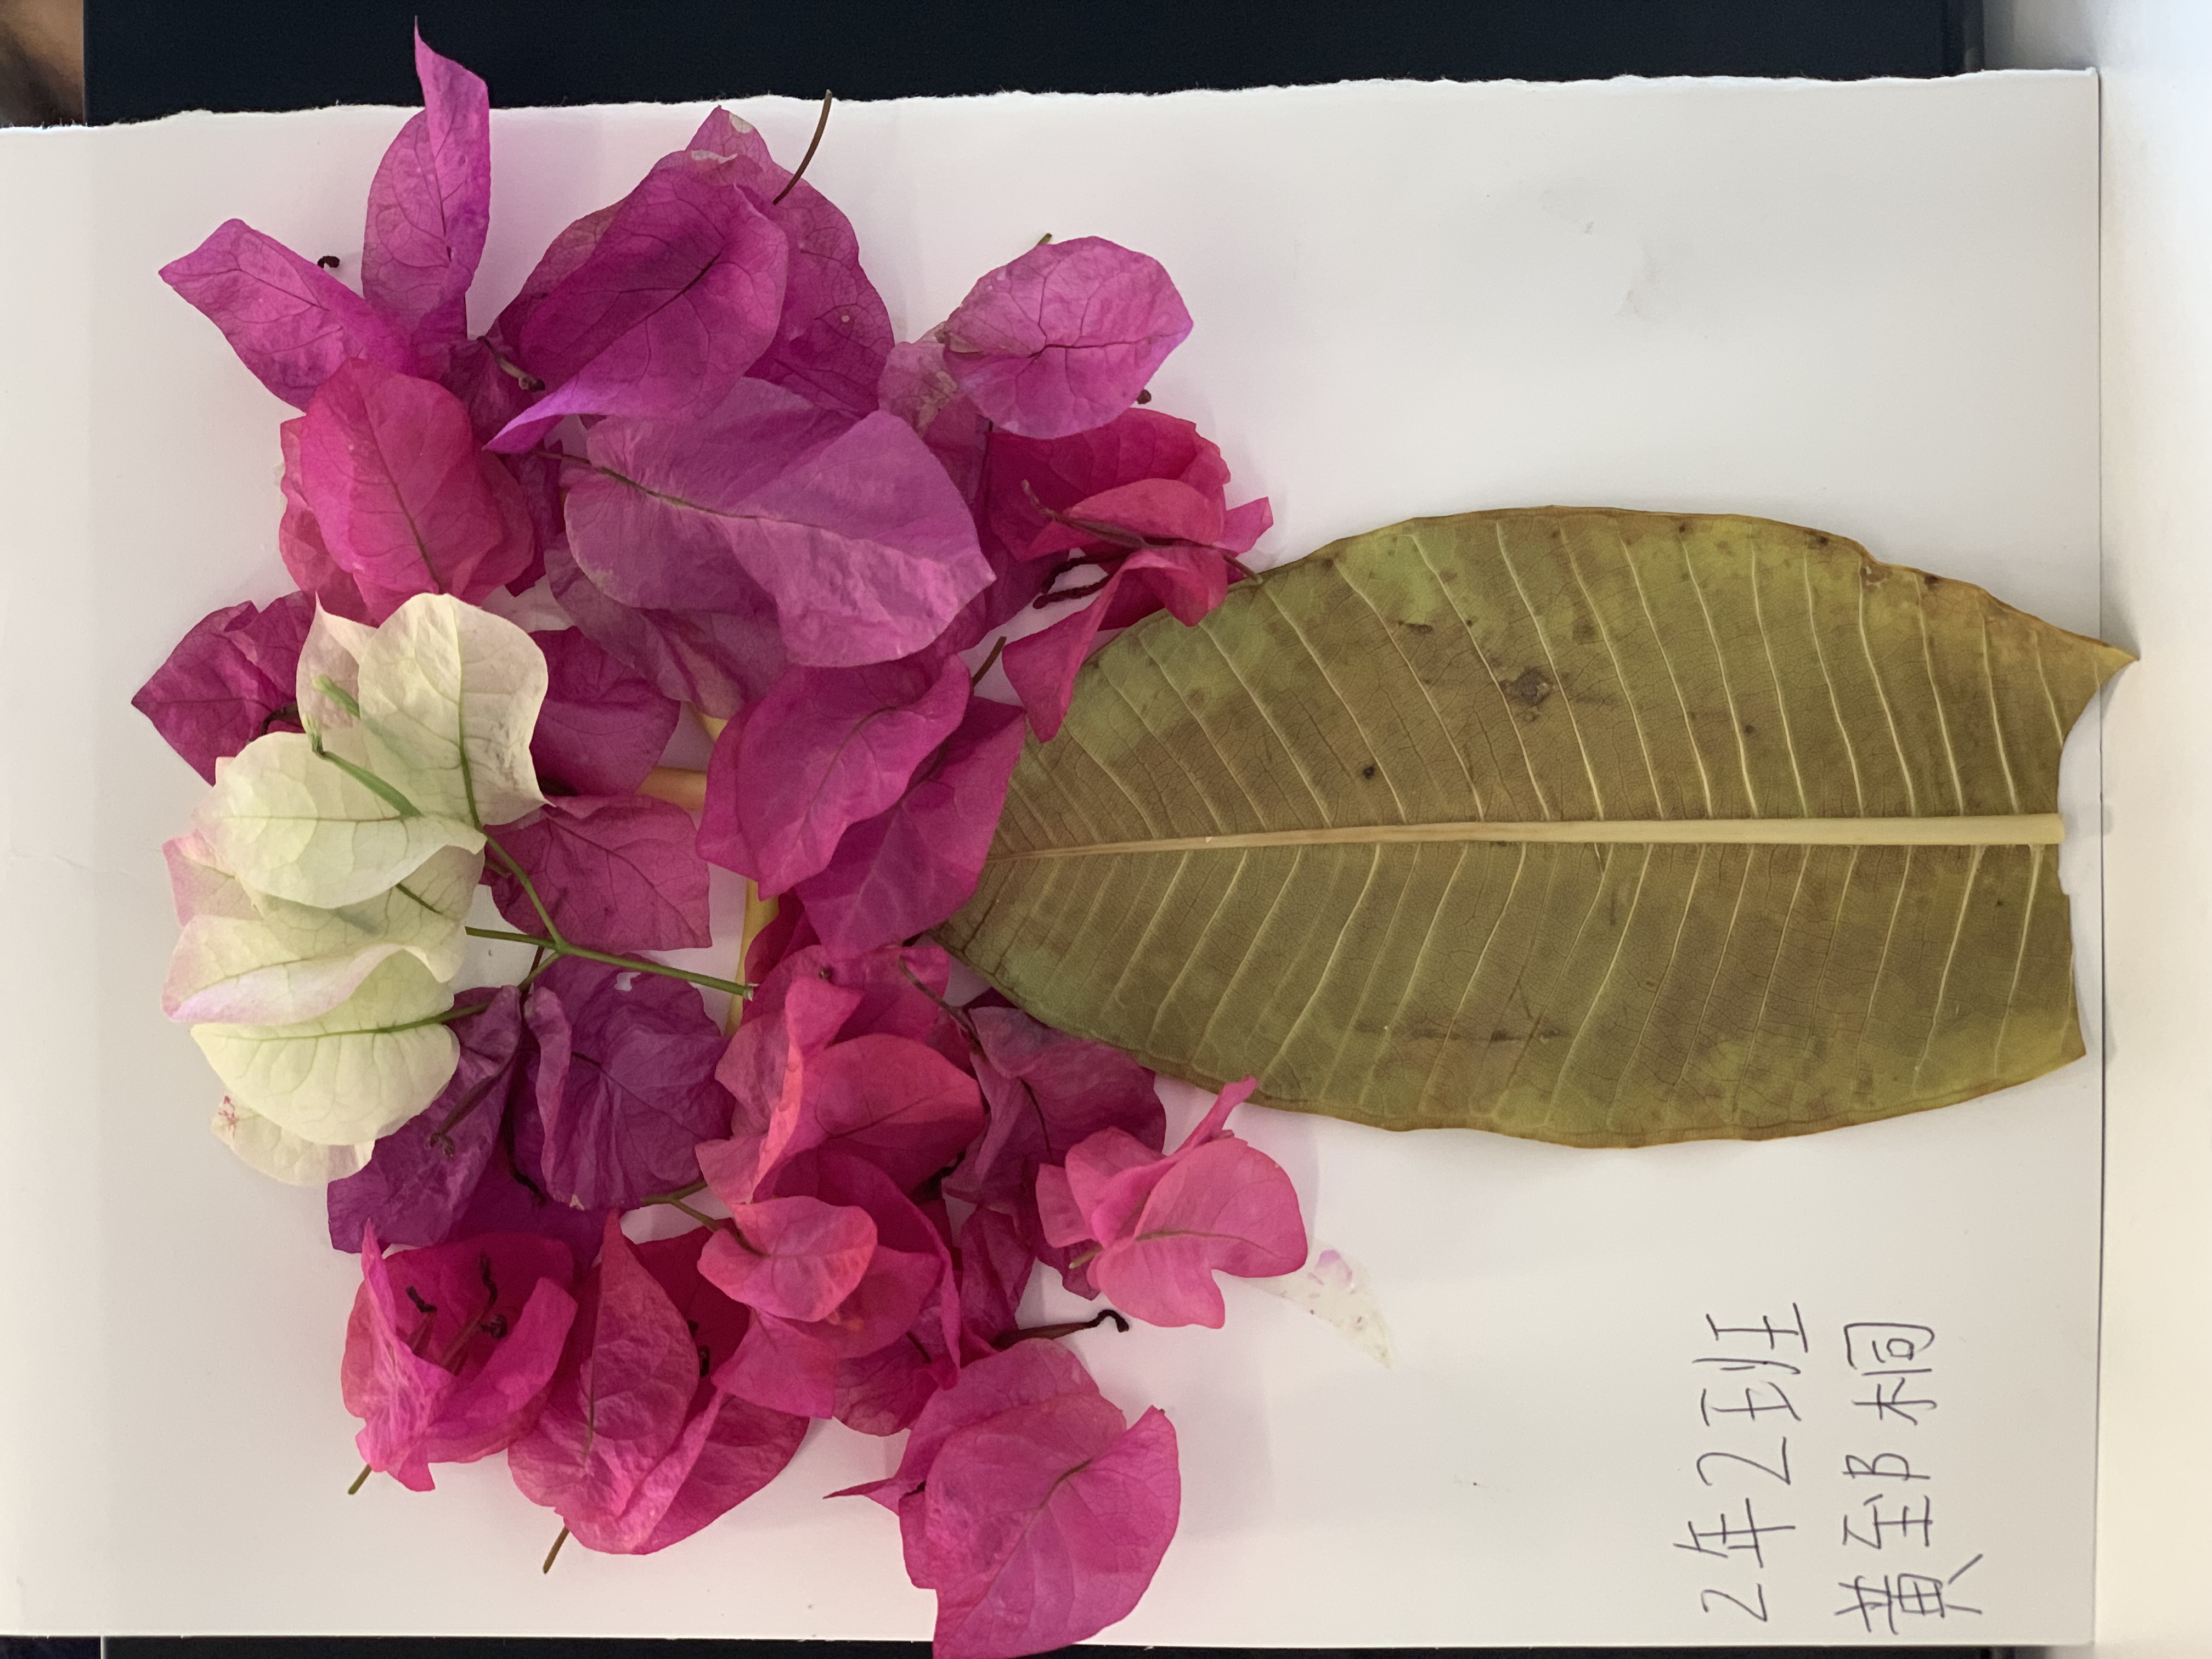 2年2班
黄郅桐